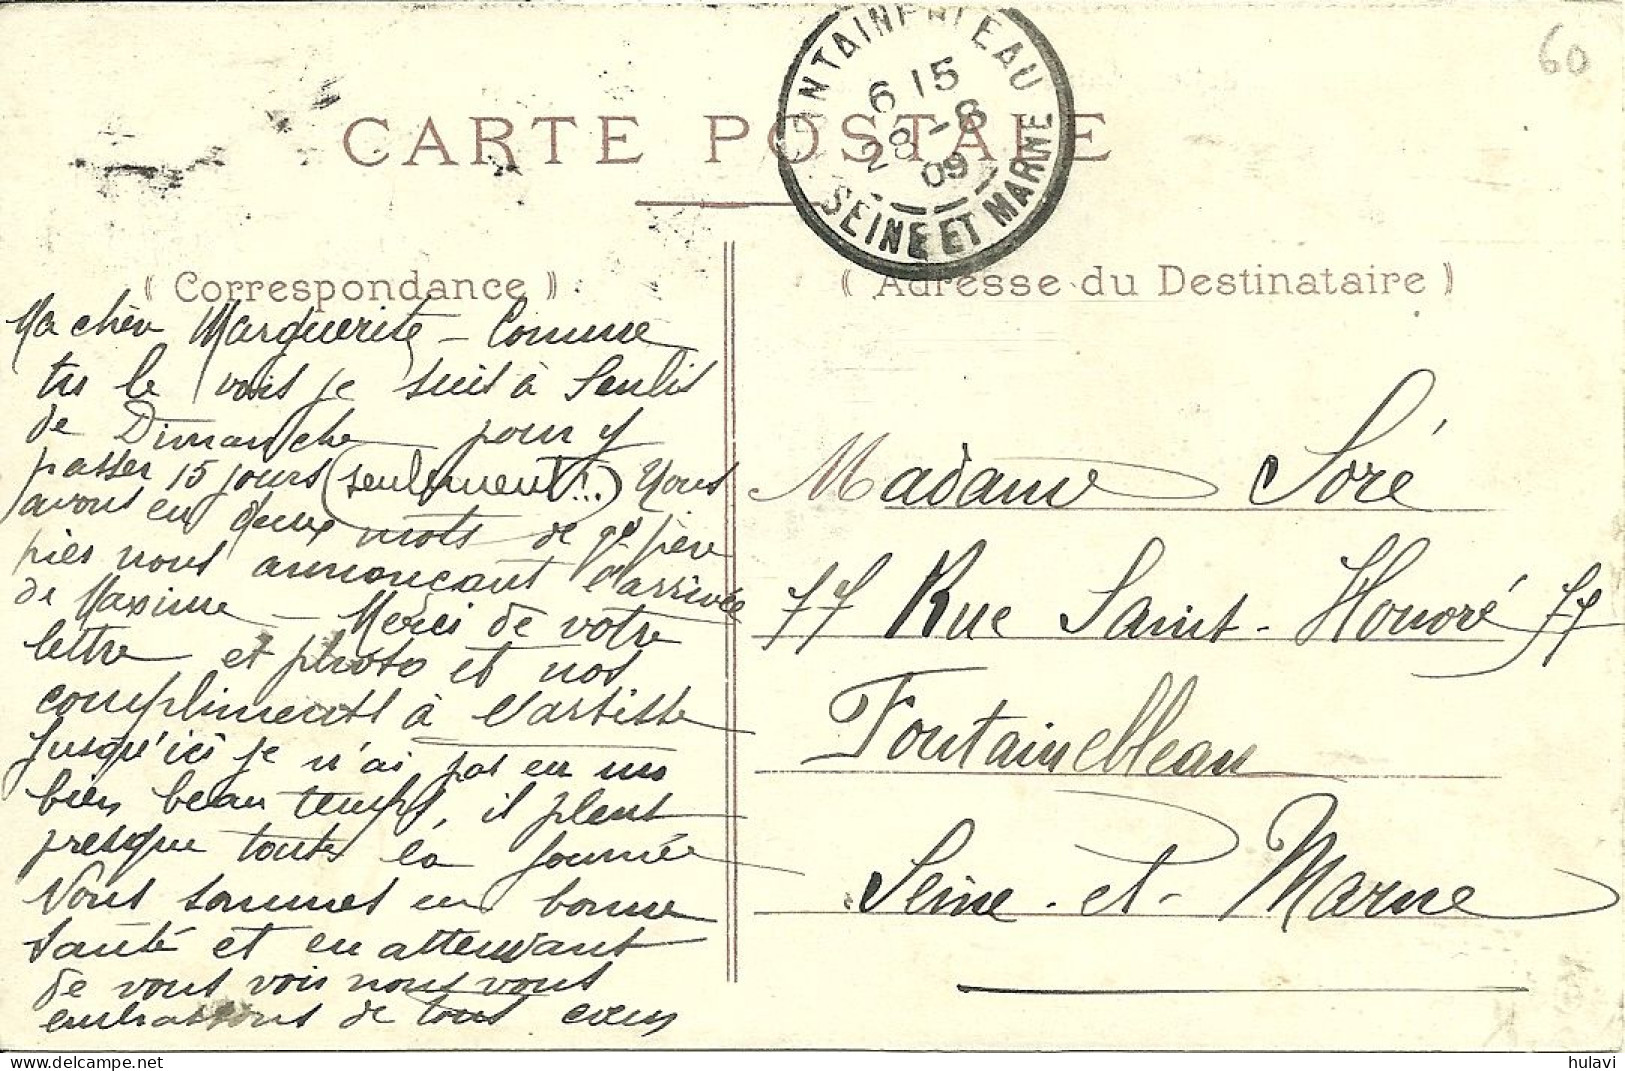 60
FONTAINEBLEAU
6 15
28 - 8
09
SEINE ET MARNE
CARTE POSTALE
Correspondance
Ma chère Marguerite – Comme
tu le vois je suis à Senlis
de Dimanche pour y
passer 15 jours (seulement!..) Nous
avons eu deux mots de gd père
nous annonçant l'arrivée
de Maxime – Merci de votre
lettre et photo et nos
compliments à l'artiste
Jusqu'ici je n'ai pas eu un
bien beau temps, il pleut
presque toute la journée
Nous sommes en bonne
santé et en attendant
de vous voir nous vous
embrassons de tous cœurs
Adresse du Destinataire
Madame Soré
77 Rue Saint-Honoré 77
Fontainebleau
Seine-et-Marne
hulavi